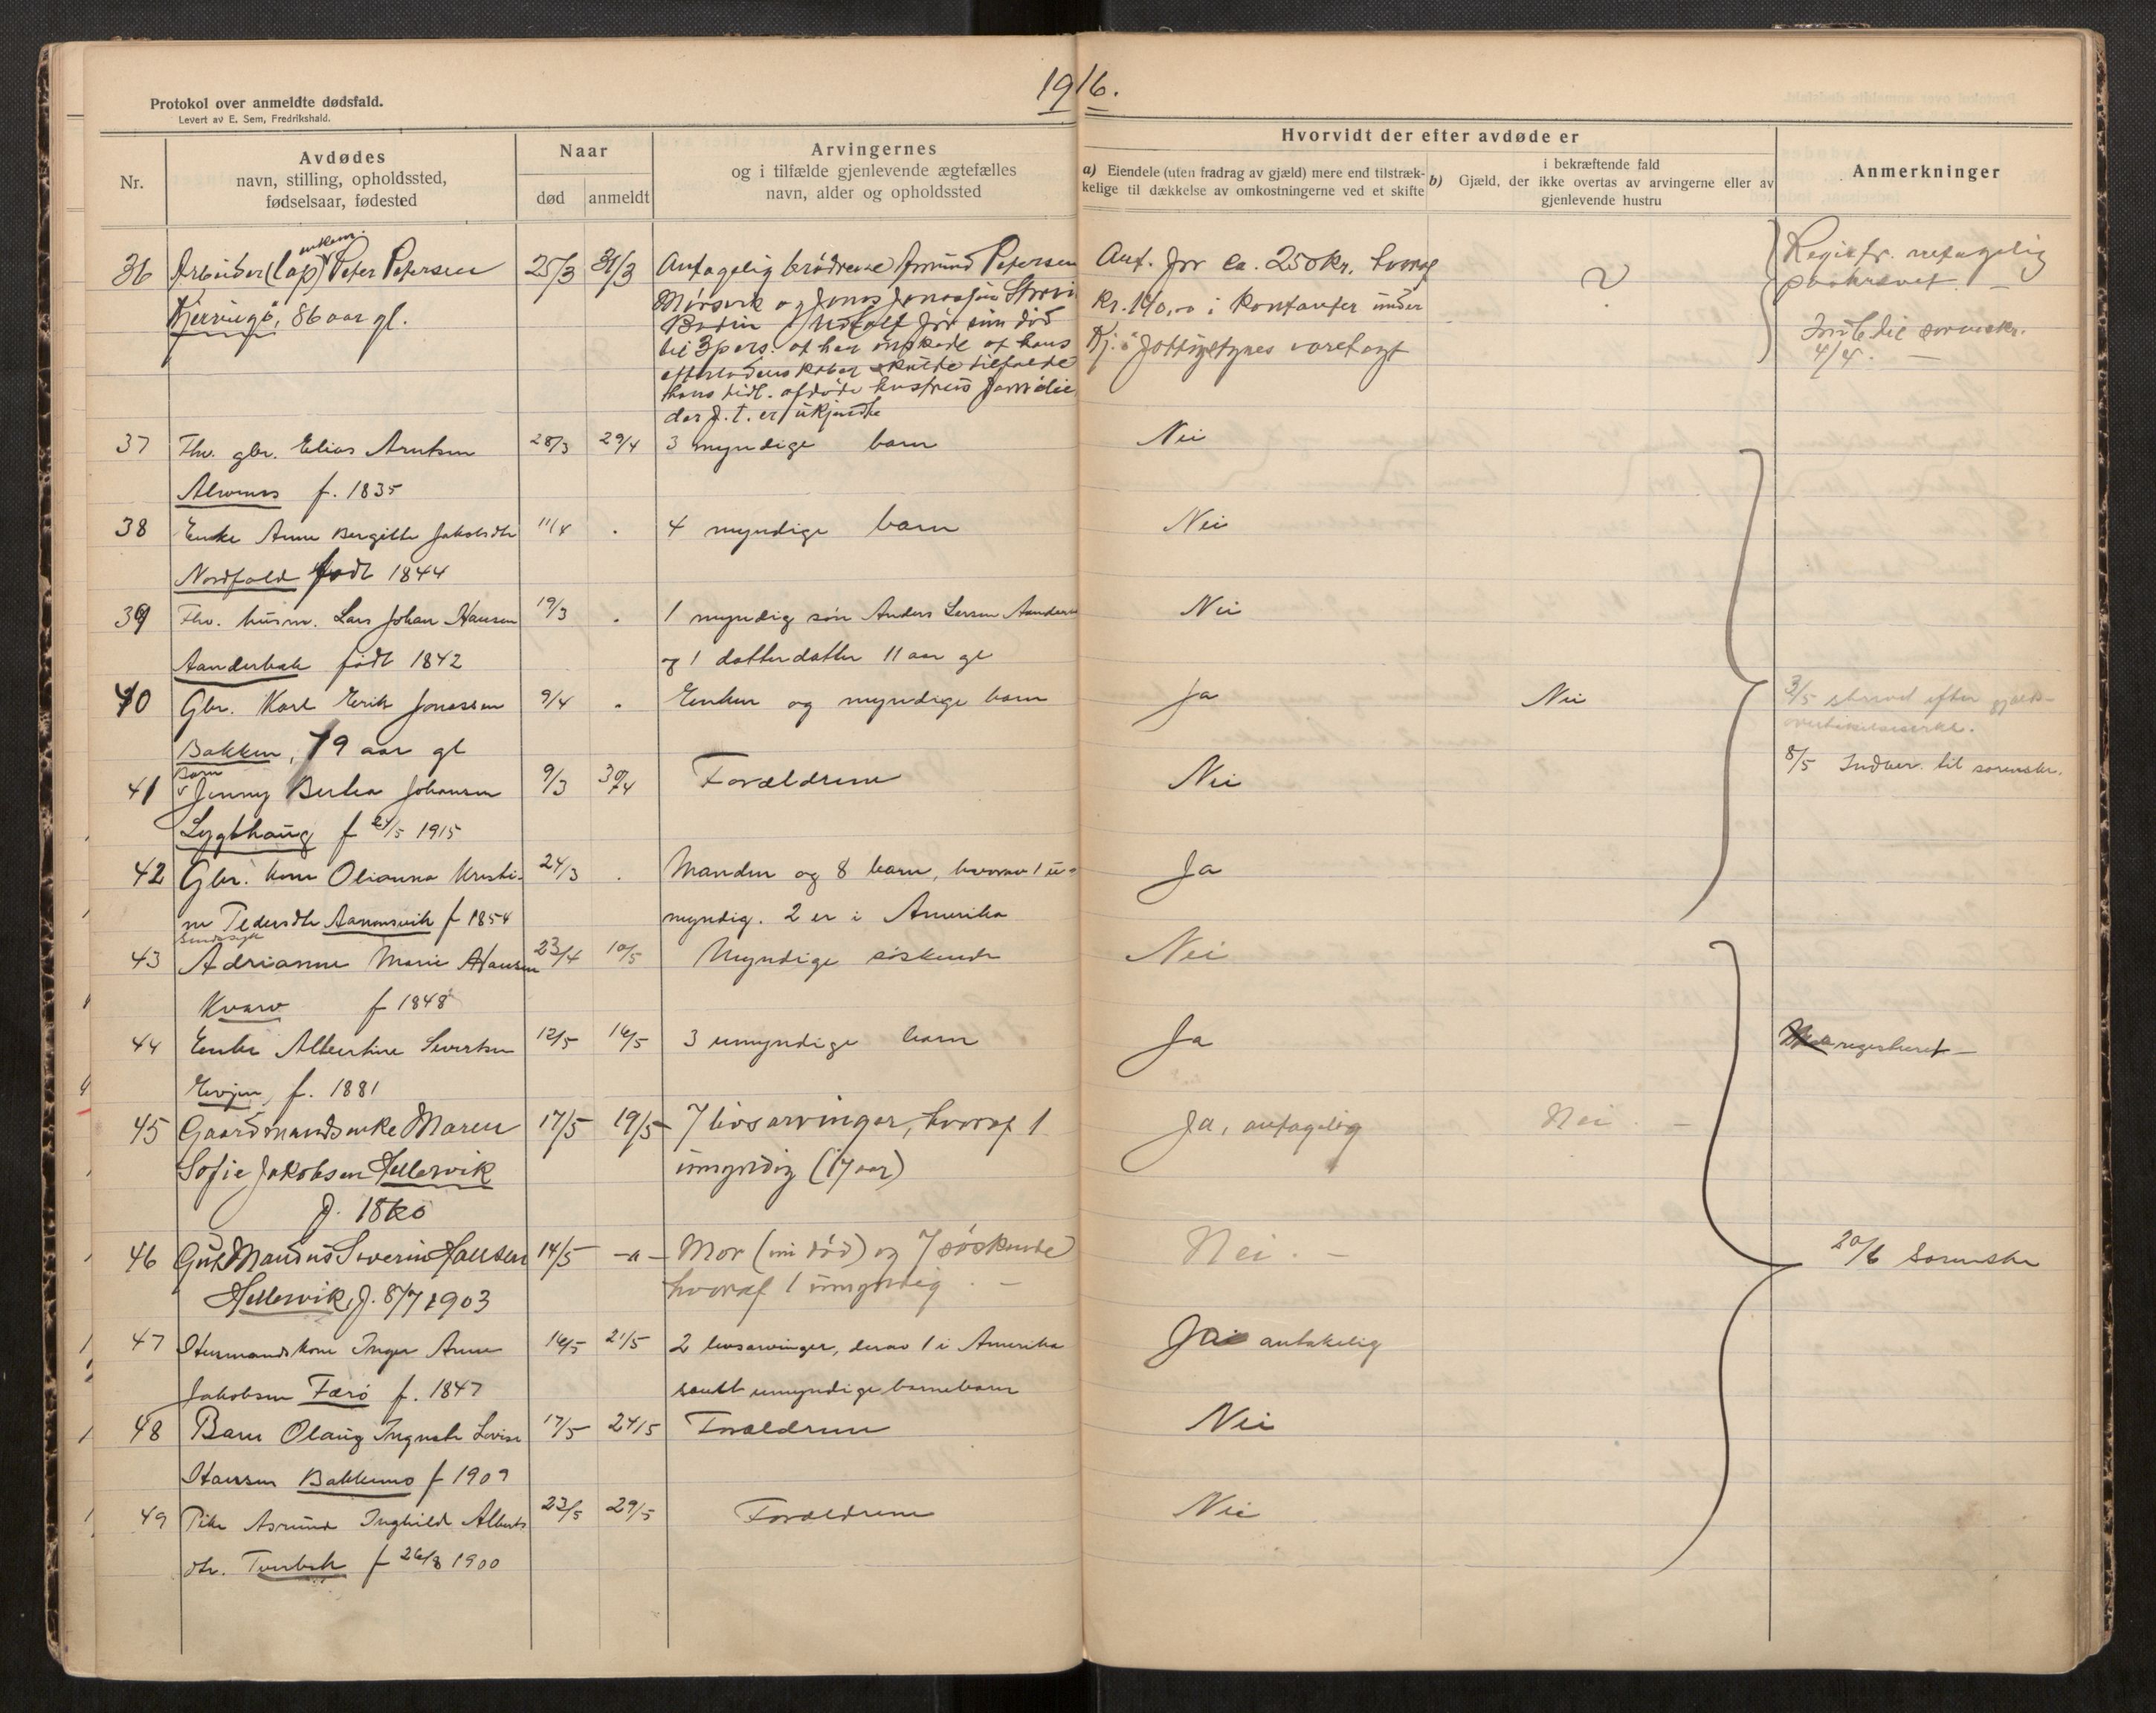 1916.
Protokol over anmeldte dødsfald.
Levert av E. Sem, Fredrikshald.
Nr.
Avdødes
navn, stilling, opholdssted,
fødselsaar, fødested
Naar
død anmeldt
Arvingernes
og i tilfælde gjenlevende ægtefælles
navn, alder og opholdssted
Hvorvidt der efter avdøde er
a) Eiendele (uten fradrag av gjæld) mere end tilstræk-
kelige til dækkelse av omkostningerne ved et skifte
b) Gjæld, der i bekræftende fald
ikke overtas av arvingerne eller av
gjenlevende hustru
Anmerkninger
36 Arbeider (lap) enkem. Peter Petersen 25/3 31/3 Antagelig brødrene Amund Petersen Ant. for ca. 250 kr. hvoraf ? Registr. antagelig
Kjerringø, 86 aar gl. Mørsvik og Jonas Jonassen kr. 140,00 i kontanter under paakrævet. —
Bodin. Udtalt før sin død Kj.ö
til 3 pers. at han ønskede at hans varetægt
efterladenskaber skulde tilfalde 4/4. —
hans tidl. afdøde hustrus familie
der f. t. er ukjendte
37 Fhv. gbr. Elias Arntsen 28/3 29/4 3 myndige barn Nei
Alvenes f. 1835
38 Enke Anne Bergitte Jakobsdtr 11/4 . 4 myndige barn Nei
Nordfold født 1844
39 Fhv. husm. Lars Johan Hansen 19/3 . 1 myndig søn Anders Larsen Nei
Aanderbak født 1842 og 1 datterdatter 11 aar gl
40 Gbr. Karl Erik Jonassen 9/4 . Enken og myndige barn Ja Nei 3/5 skrevet efter gjælds-
Bakken, 79 aar gl overtakelseserkl.
41 Barn Jenny Berka Johansen 9/3 30/4 Forældrene Nei 8/5 Indber. til sorenskr.
Lygthaug f /5 1915
42 Gbr. kone Olianna Kristi- 24/3 . Manden og 8 barn, hvorav 1 u- Ja
ne Pedersdtr Aanonsvik f 1854 myndig. 2 er i Amerika
43 Sindssyk Adrianne Marie Hansen 23/4 10/5 Myndige søskende Nei
Kvarv f 1848
44 Enke Albertine Sivertsen 12/5 16/5 3 umyndige barn Ja registreret —
Evjen, f. 1881
45 Gaardmandsenke Maren 17/5 19/5 7 livsarvinger, hvoraf 1 Ja, antagelig Nei. —
Sofie Jakobsen Hellervik umyndig (17 aar)
f. 18
46 Gut Mandus Severin Hansen 14/5 -"- Mor (nu død) og 7 søskende Nei. — 20/6 Sorenskr
Hellervik, f. 8/7 1903 hvoraf 1 umyndig. —
47 Husmandskone Inger Anne 16/5 21/5 2 livsarvinger, derav 1 i Amerika Ja antakelig
Jakobsen Færø f. 1847 samt umyndige barnebarn
48 Barn Olaug Ingvale Lovise 17/5 24/5 Forældrene Nei
Hansen Bakkemo f 1909
49 Pike Asrund Inghild Alberts 23/5 29/5 Forældrene Nei
dtr. Tverbak f 26/8 1900